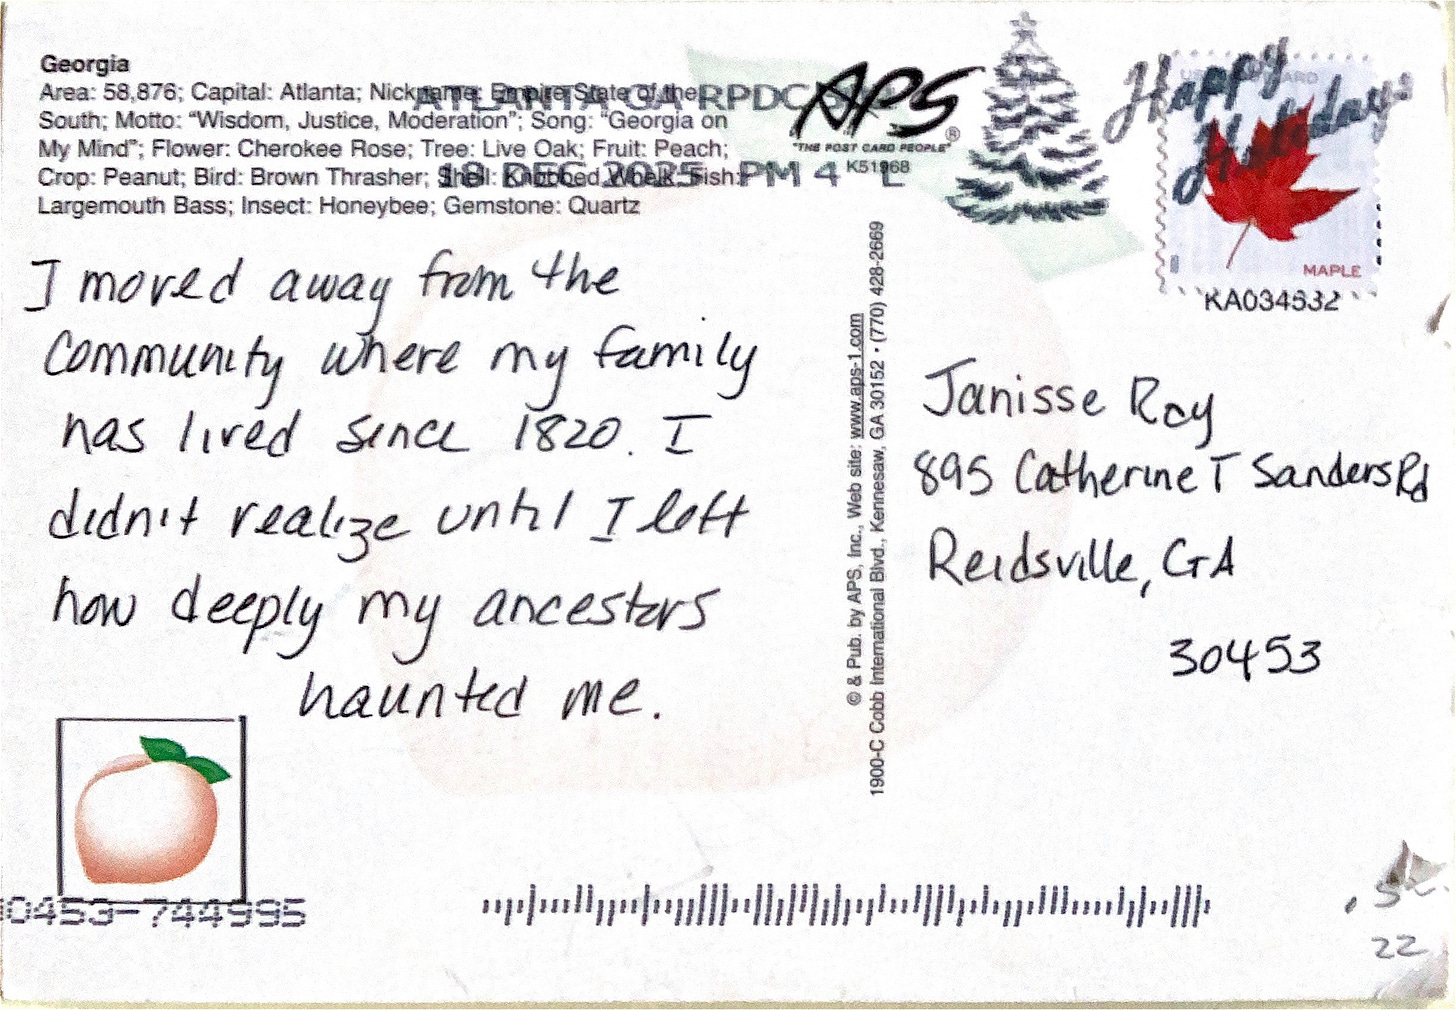 Georgia
Area: 58,876; Capital: Atlanta; Nickname: Empire State of the
South; Motto: “Wisdom, Justice, Moderation”; Song: “Georgia on
My Mind”; Flower: Cherokee Rose; Tree: Live Oak; Fruit: Peach;
Crop: Peanut; Bird: Brown Thrasher; Shell: Knobbed Whelk; Fish:
Largemouth Bass; Insect: Honeybee; Gemstone: Quartz
ATLANTA GA RPDC
18 DEC 2025 PM 4 L
APS®
"THE POST CARD PEOPLE"
K51968
Happy
Holidays
MAPLE
KA034532
I moved away from the
community where my family
has lived since 1820. I
didn't realize until I left
how deeply my ancestors
haunted me.
© & Pub. by APS, Inc., Web site: www.aps-1.com
1900-C Cobb International Blvd., Kennesaw, GA 30152 • (770) 428-2669
Janisse Ray
895 Catherine T Sanders Rd
Reidsville, GA
30453
0453-744995
22